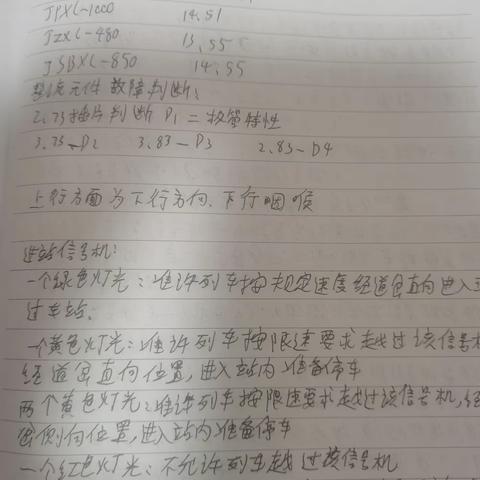 JPXL-1000 14,51
JZXL-480 13,55
JSBXL-850 14,55
整流元件故障判断:
2,73插片判断 D1 二极管特性
3.73-D2 3.83-D3 2.83-D4
上行方面为下行方向、下行咽喉
进站信号机:
一个绿色灯光:准许列车按规定速度经道岔直向进入
过车站;
一个黄色灯光:准许列车按限速要求越过该信号机
经道岔直向位置,进入站内准备停车
两个黄色灯光:准许列车按限速要求越过该信号机,经
岔侧向位置,进入站内准备停车
一个红色灯光:不允许列车越过该信号机